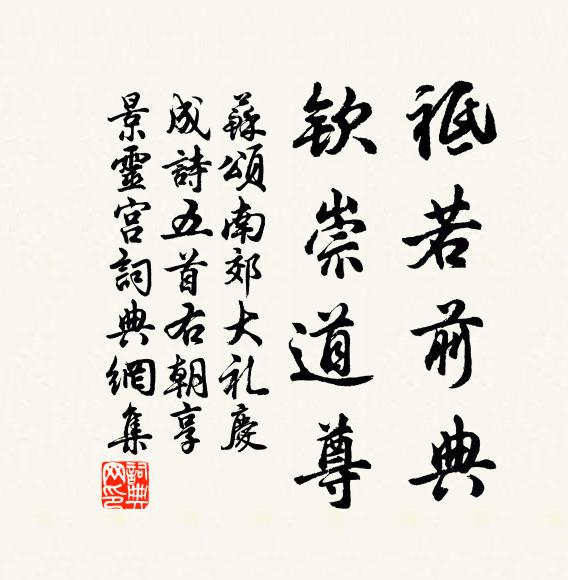 祗若前典
欽崇道尊
蘇頌南郊大礼慶
成詩五首右朝享
景靈宮詞典網集
詞典
网印